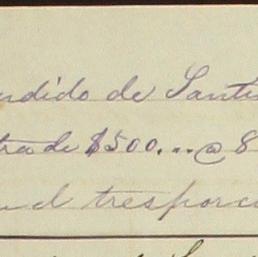 ndido de Santi
tra de $500...@ 8
und tres por c